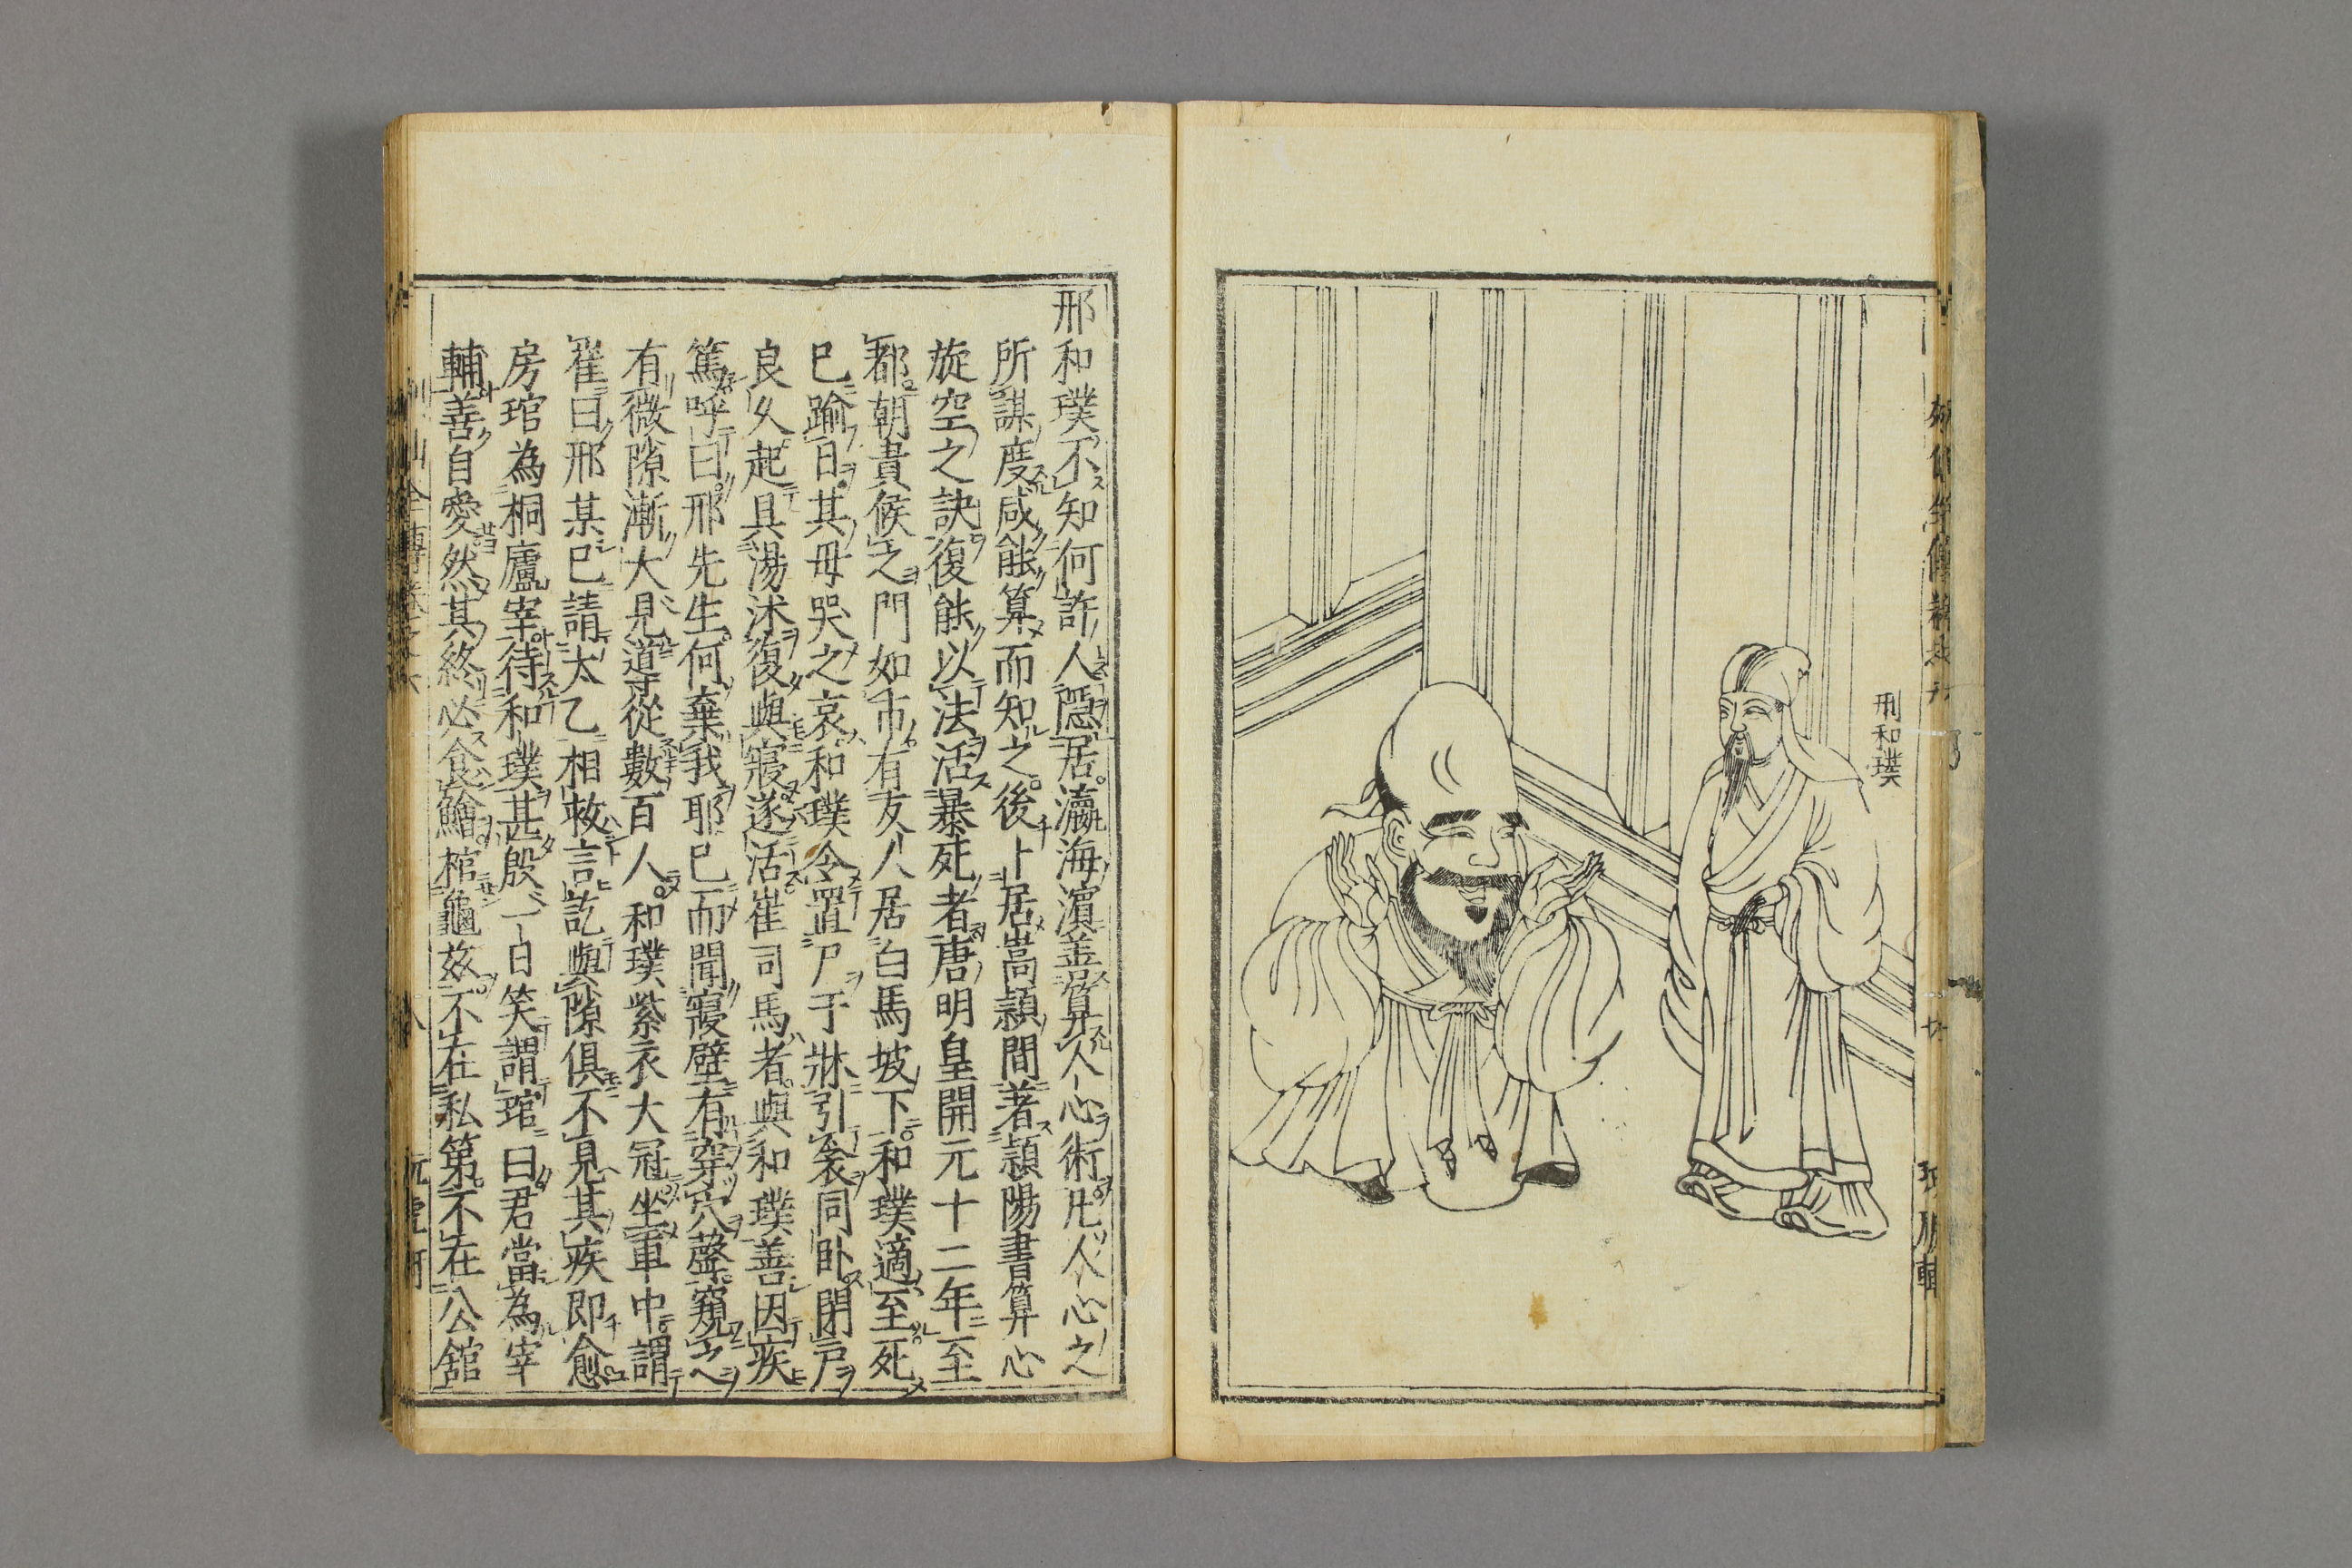 刑和璞
邢和璞不知何許人隱居瀛海濵善算人心術凡人心之
所謀度咸能算而知之後卜居嵩潁間著潁陽書算心
旋空之訣復能以法活暴死者唐明皇開元十二年至
都朝貴候之門如市有友人居白馬坡下和璞適至死
巳踰日其母哭之哀和璞令置尸于牀引衾同卧閉戸
良乆起具湯沐復與寢遂活崔司馬者與和璞善因疾
篤呼曰邢先生何棄我耶巳而聞寢壁有穿穴聲窺之
有微隙漸大見道從數百人和璞紫衣大冠坐車中謂
崔曰邢某巳請太乙相救言訖與隙俱不見其疾即愈
房琯為桐廬宰待和璞甚殷一日笑謂琯曰君當為宰
輔善自愛然其終必食鱠棺龜兹不在私第不在公舘